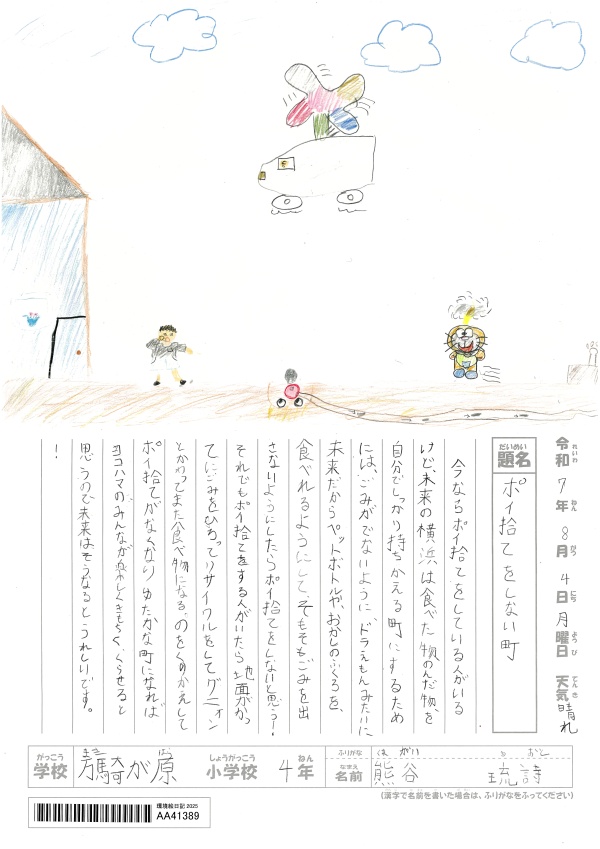 令和7年8月4日月曜日 天気晴れ
れいわ ねん がつ にち ようび てんき
だいめい
題名 ポイ捨てをしない町
今ならポイ捨てをしている人がいる
けど、未来の横浜は食べた物、のんだ物を
自分でしっかり持ちかえる町にするため
には、ごみがでないように、ドラえもんみたいに
未来だからペットボトルや、おかしのふくろを、
食べれるようにして、そもそもごみを出
さないようにしたらポイ捨てをしないと思う!
それでもポイ捨てをする人がいたら地面がか
てにごみをひろってリサイクルをしてグニョン
とかわってまた食べ物になる。のをくりかえして
ポイ捨てがなくなりゆたかな町になれば
ヨコハマのみんなが楽しくきもちくくらせると
思うので未来はそうなるとうれしいです。
!
がっこう しょうがっこう ねん ふりがな
学校 万騎が原 小学校 4年
なまえ
名前 熊谷 琉詩
(漢字で名前を書いた場合は、ふりがなをふってください)
環境絵日記 2025
AA41389